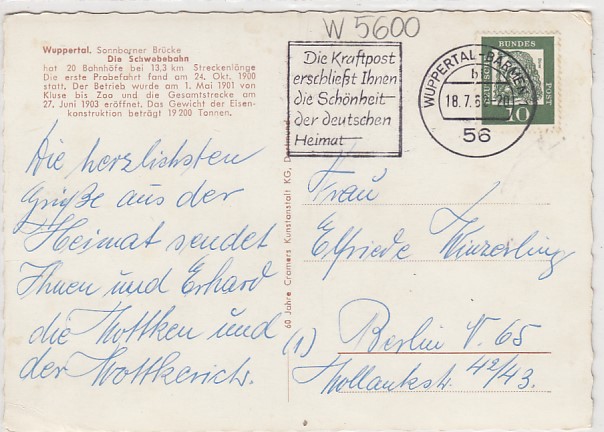 W 5600
Wuppertal. Sonnborner Brücke
Die Schwebebahn
hat 20 Bahnhöfe bei 13,3 km Streckenlänge
Die erste Probefahrt fand am 24. Okt. 1900
statt. Der Betrieb wurde am 1. Mai 1901 von
Kluse bis Zoo und die Gesamtstrecke am
27. Juni 1903 eröffnet. Das Gewicht der Eisen-
konstruktion beträgt 19 200 Tonnen.
Die Kraftpost
erschließt Ihnen
die Schönheit
der deutschen
Heimat
WUPPERTAL-BARMEN
b
18.7.6
56
DEUTSCHE BUNDESPOST
10
Die herzlichsten
Grüße aus der
Heimat sendet
Ihnen und Erhard
die Wottken und
der Wottkerich.
60 Jahre Cramers Kunstanstalt KG, Dortmund
Frau
Elfriede Winzerling
(1) Berlin N. 65
Wollankstr. 42/43.